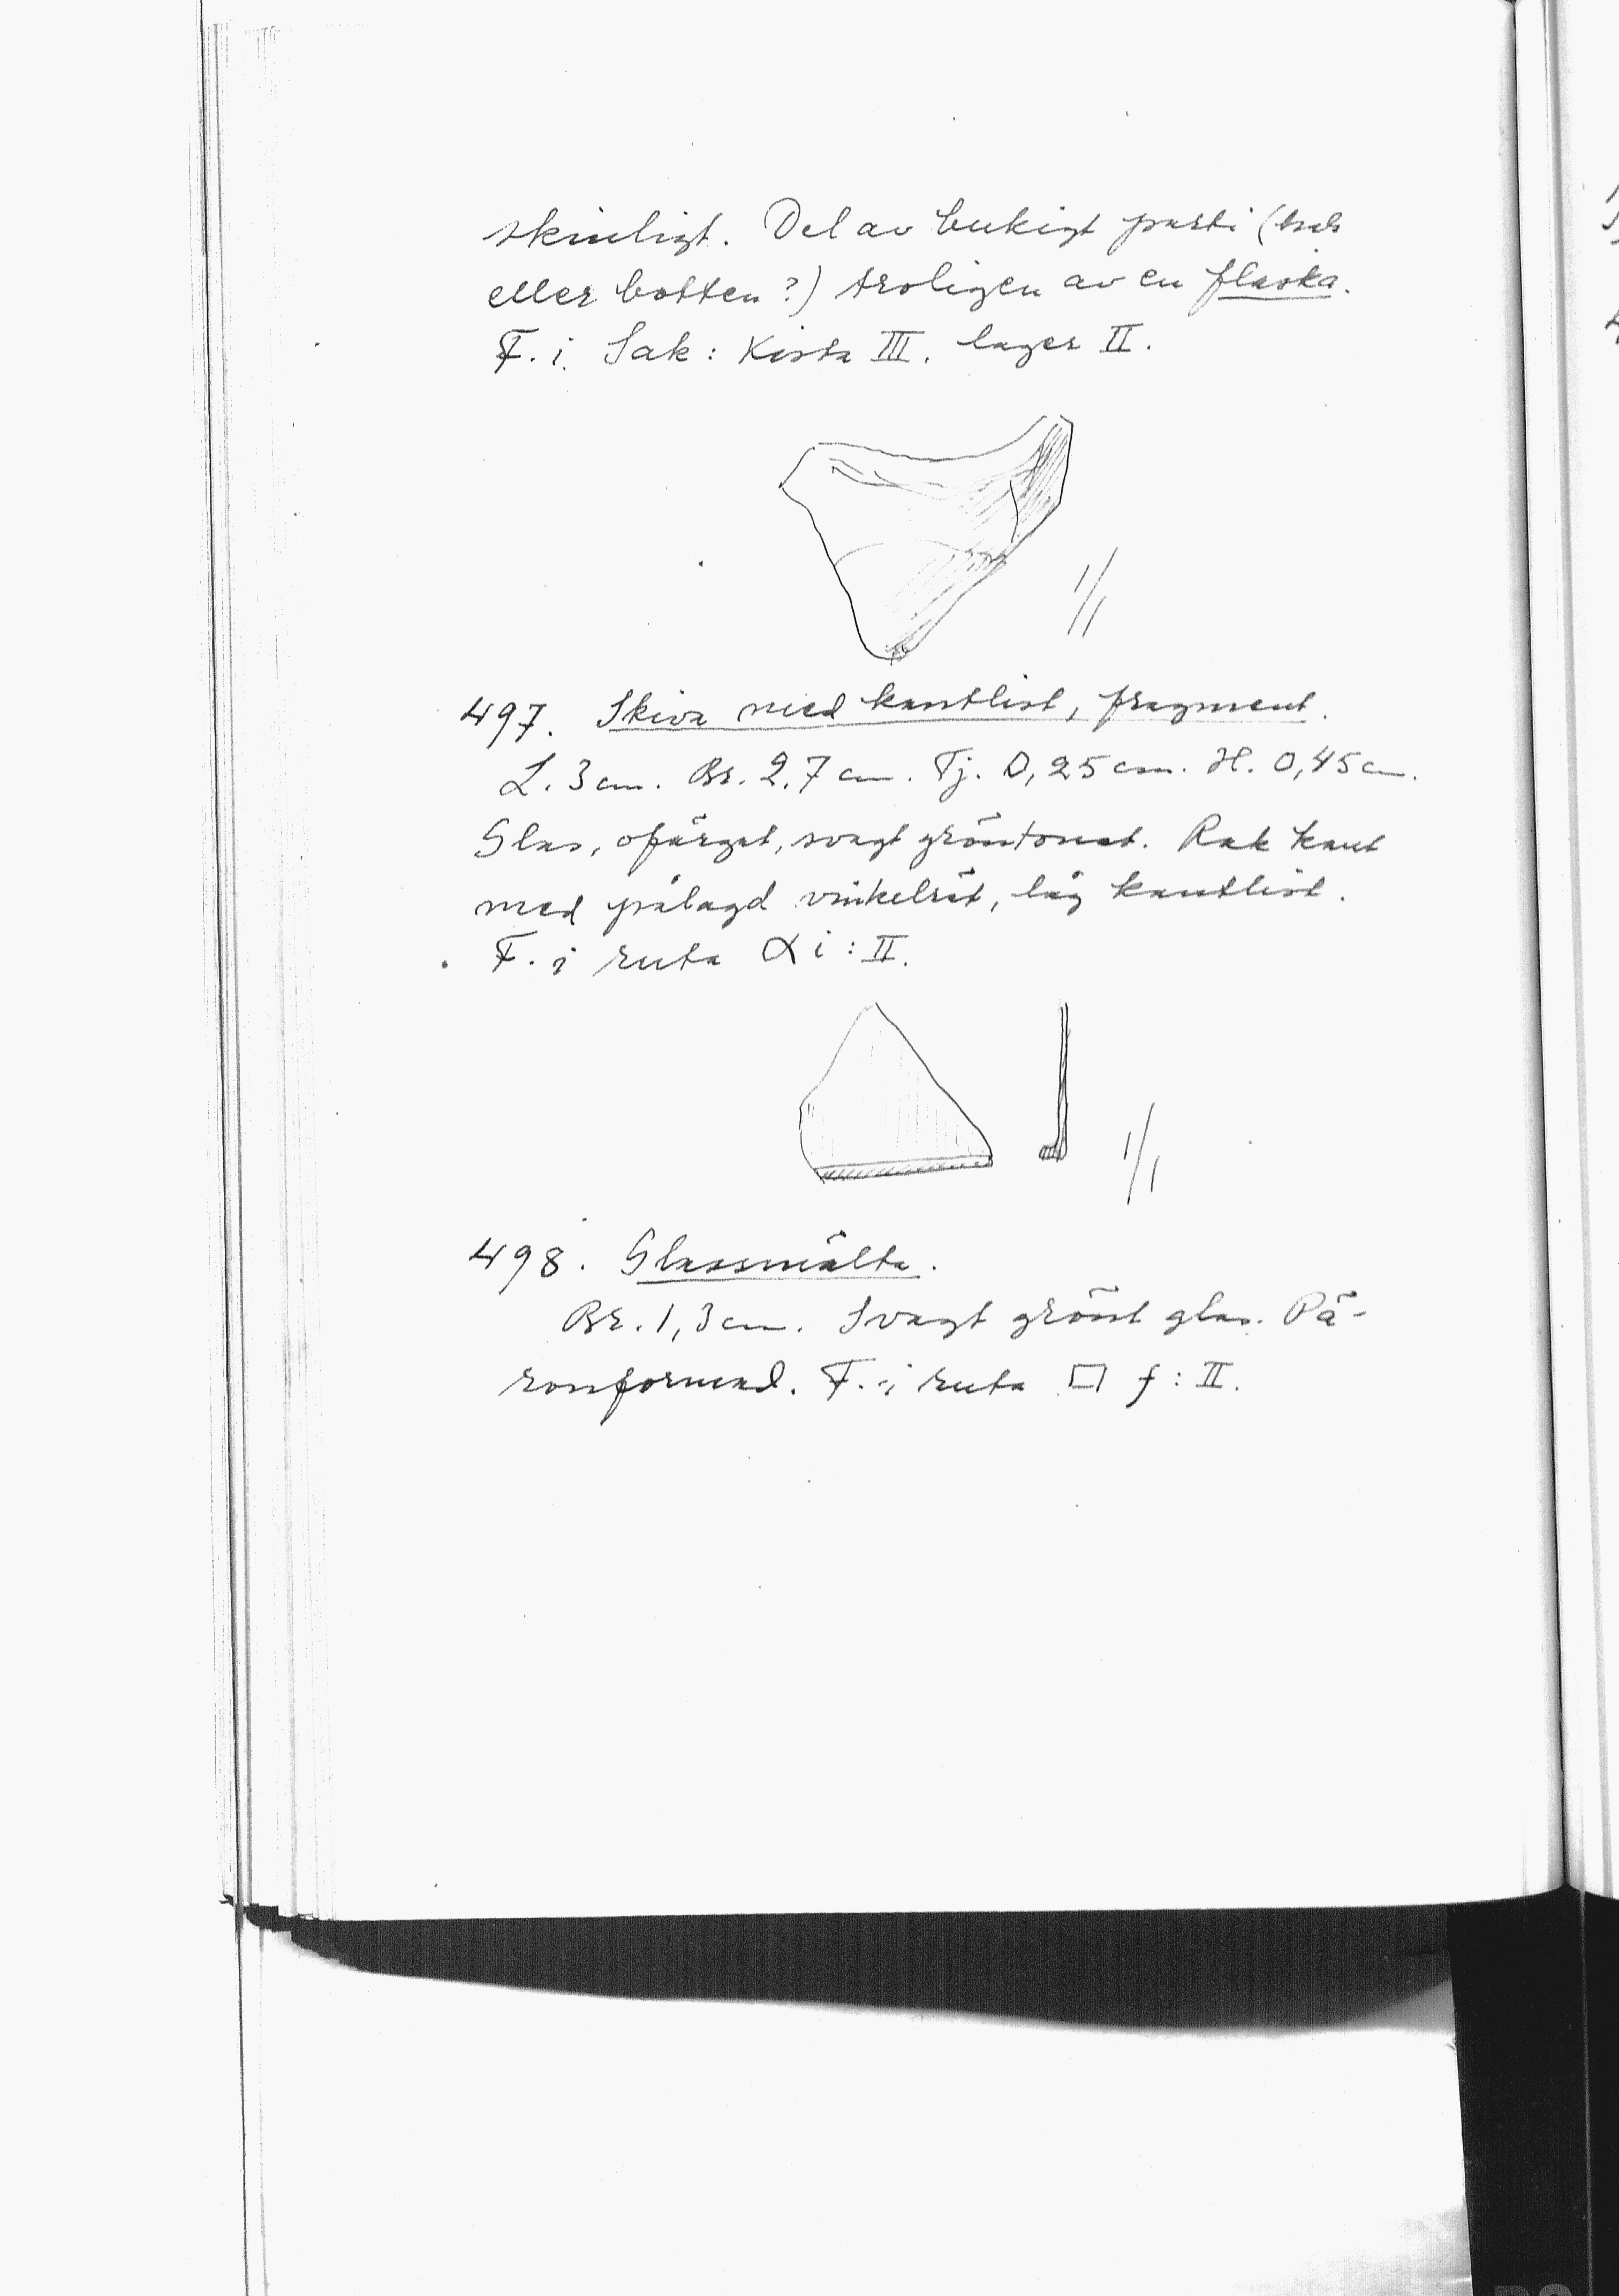 skinligt. Del av bukigt parti (hals
eller botten?) troligen av en flaska.
F. i. Sak: Kista III. lager II.
1/1
497. Skiva med kantlist, fragment.
L. 3 cm. Br. 2,7 cm. Tj. 0,25 cm. H. 0,45 cm.
Glas, ofärgat, svagt gröntonat. Rak kant
med pålagd vinkelrät, låg kantlist.
F. i ruta α i : II.
1/1
498. Glassmälta.
Br. 1,3 cm. Svagt grönt glas. Pä-
ronformad. F. i ruta □ f : II.